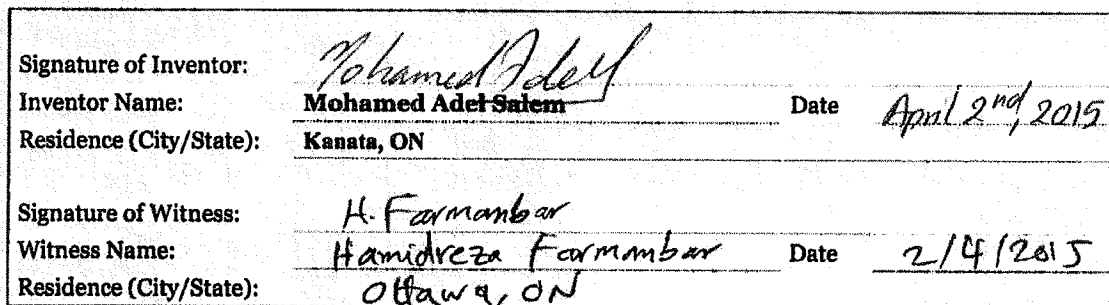 Signature of Inventor: Mohamed Adel
Inventor Name: Mohamed Adel Salem Date April 2nd, 2015
Residence (City/State): Kanata, ON
Signature of Witness: H. Farmanbar
Witness Name: Hamidreza Farmanbar Date 2/4/2015
Residence (City/State): Ottawa, ON